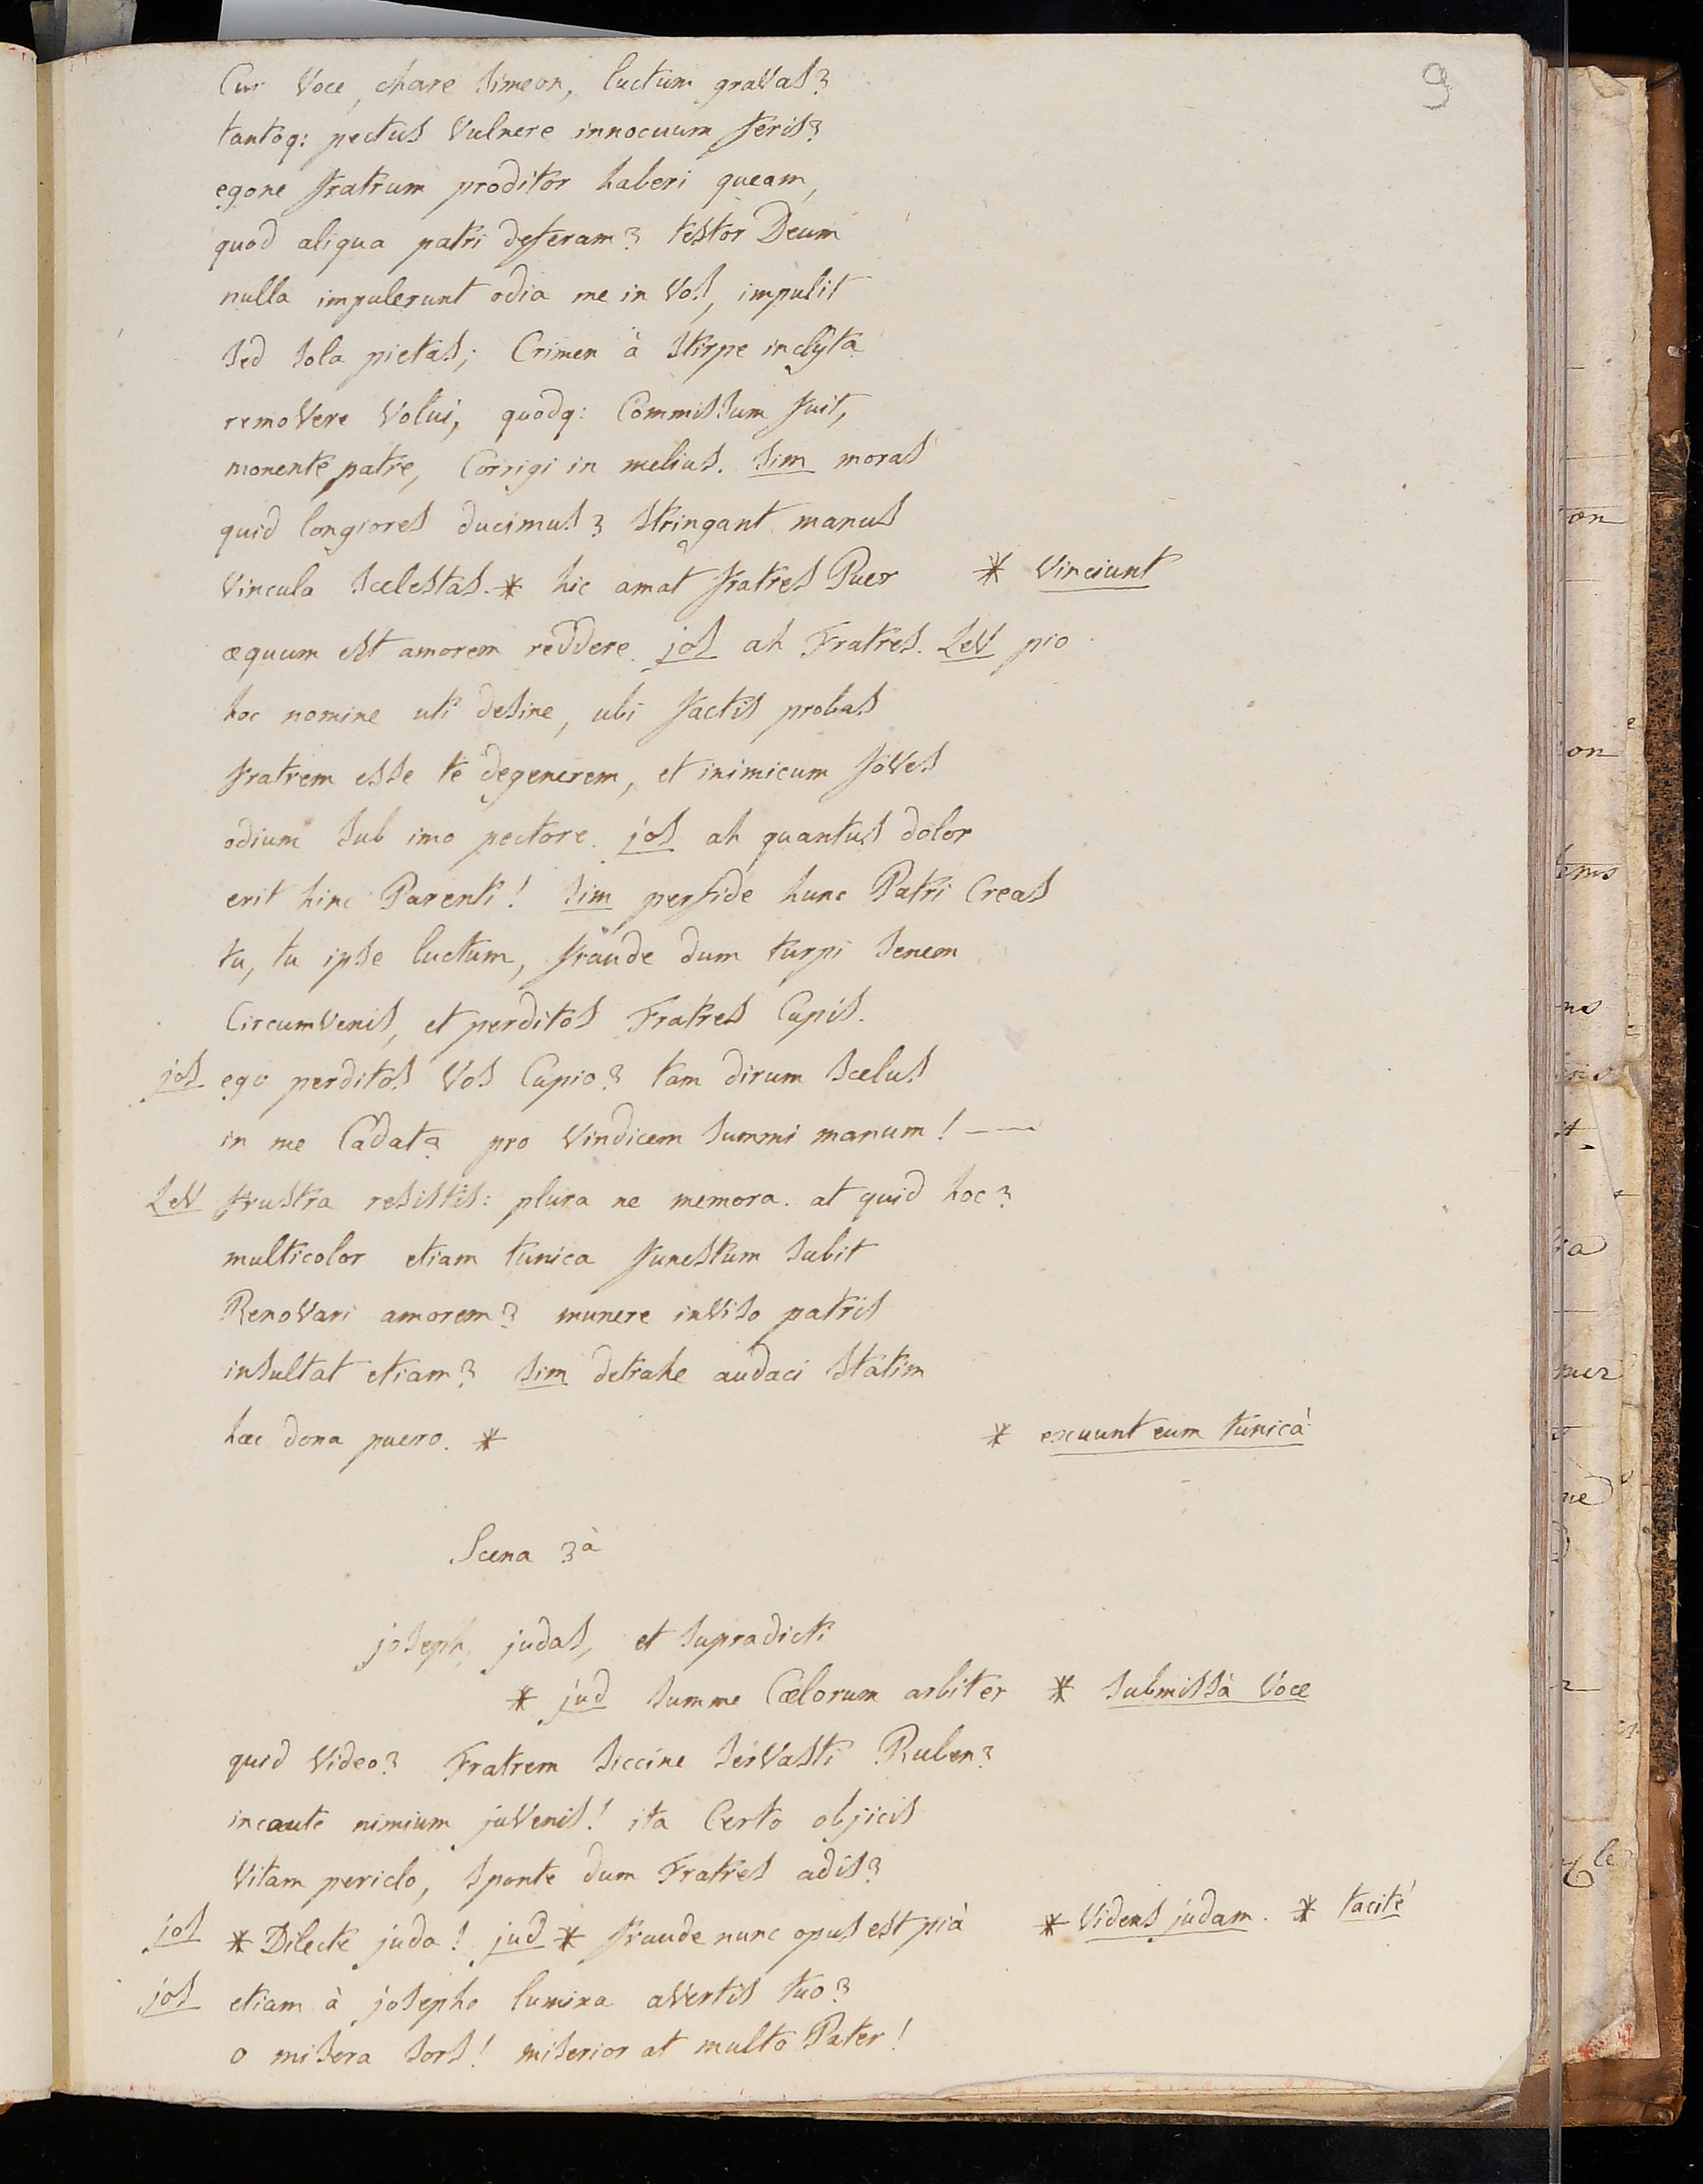 9
Cur Voce, chare Simeon, luctum graVas?
tantoq: pectus Vulnere innocuum feris?
egone fratrum proditor haberi queam,
quod aliqua patri deferam? testor Deum
nulla impulerunt odia me in Vos, impulit
sed sola pietas; Crimen à stirpe inclyta
remoVere Volui, quodq: Commissum fuit,
monente patre, Corrigi in melius. Sim moras
quid longiores ducimus? stringant manus
Vincula scelestas. * hic amat fratres Puer * Vinciunt
æquum est amorem reddere. jos ah Fratres. LeV pio
hoc nomine uti desine, ubi factis probas
fratrem esse te degenerem, et inimicum foVes
odium sub imo pectore. jos ah quantus dolor
erit hinc Parenti! Sim perfide hunc Patri Creas
tu, tu ipse luctum, fraude dum turpi senem
CircumVenis, et perditos Fratres Cupis.
jos ego perditos Vos Cupio? tam dirum scelus
in me Cadat? pro Vindicem summi manum! —
LeV frustra resistis: plura ne memora. at quid hoc?
multicolor etiam tunica funestum subit
RenoVari amorem? munere inViso patris
insultat etiam? Sim detrahe audaci statim
hæc dona puero. * * exuunt eum tunicà
Scena 3à
joseph, judas, et supradicti
* jud summe Cælorum arbiter * submissà Voce
quid Video? Fratrem siccine serVasti Ruben?
incaute nimium juVenis! ita Certo objicis
Vitam periclo, sponte dum Fratres adis?
jos * Dilecte juda! jud * fraude nunc opus est pià * Videns judam. * tacitè
jos etiam à josepho lumina aVertis tuo?
o misera sors! miserior at multo Pater!